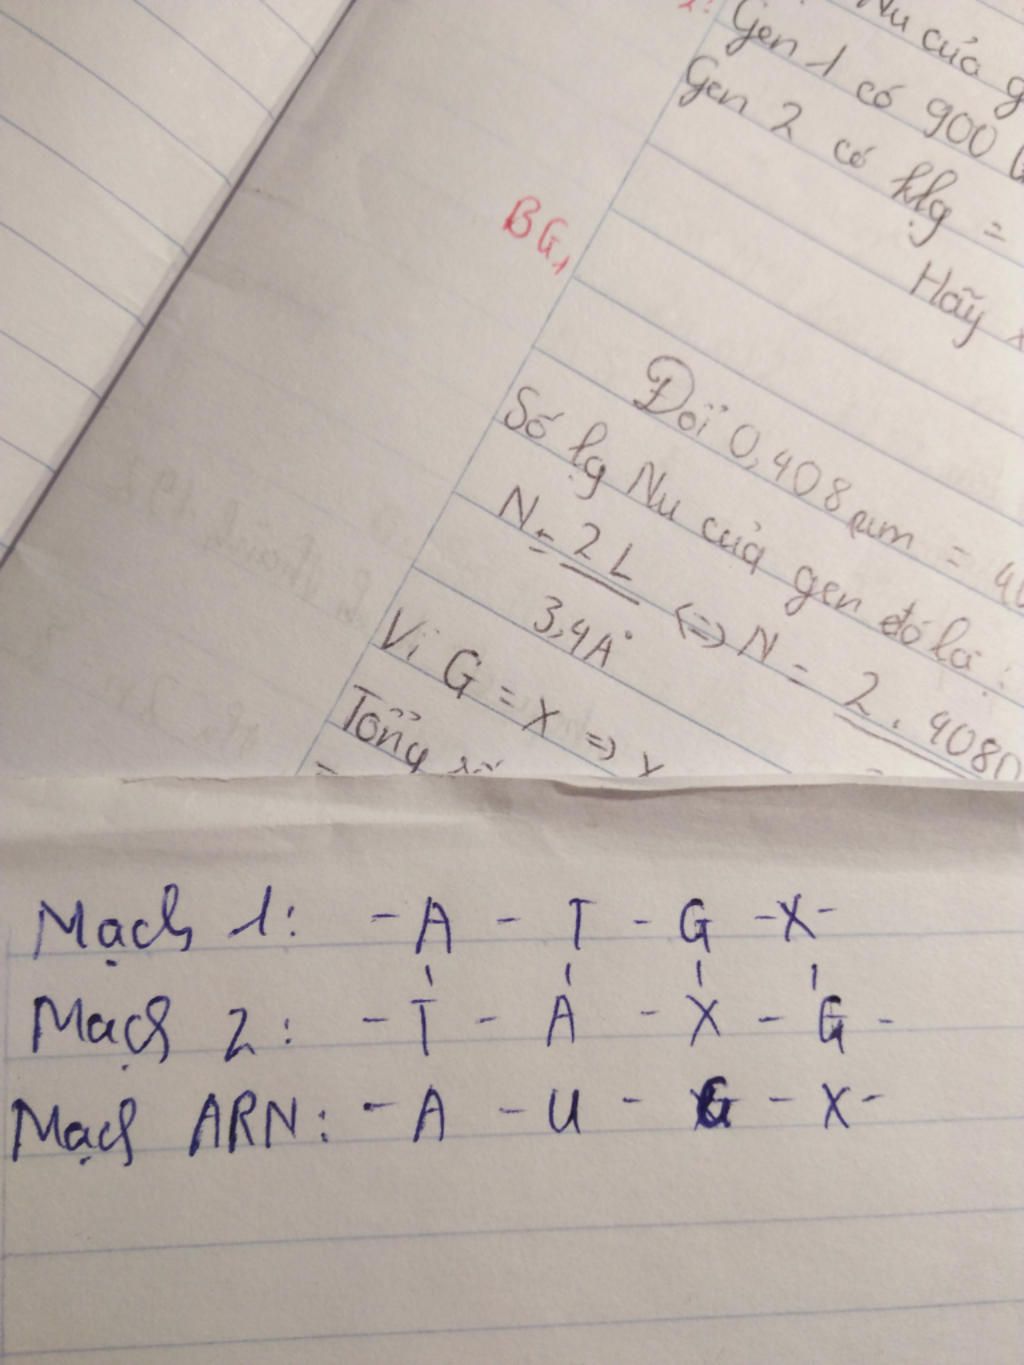 Nu của
Gen 1 có 900
Gen 2 có klg =
Hãy
BG1
Đổi 0,408 µm = 40
Số lg Nu của gen đó là:
N = 2L / 3,4A° <=> N = 2.4080
Vì G = X =>
Tổng số
Mạch 1: - A - T - G - X -
Mạch 2: - T - A - X - G -
Mạch ARN: - A - U - G - X -